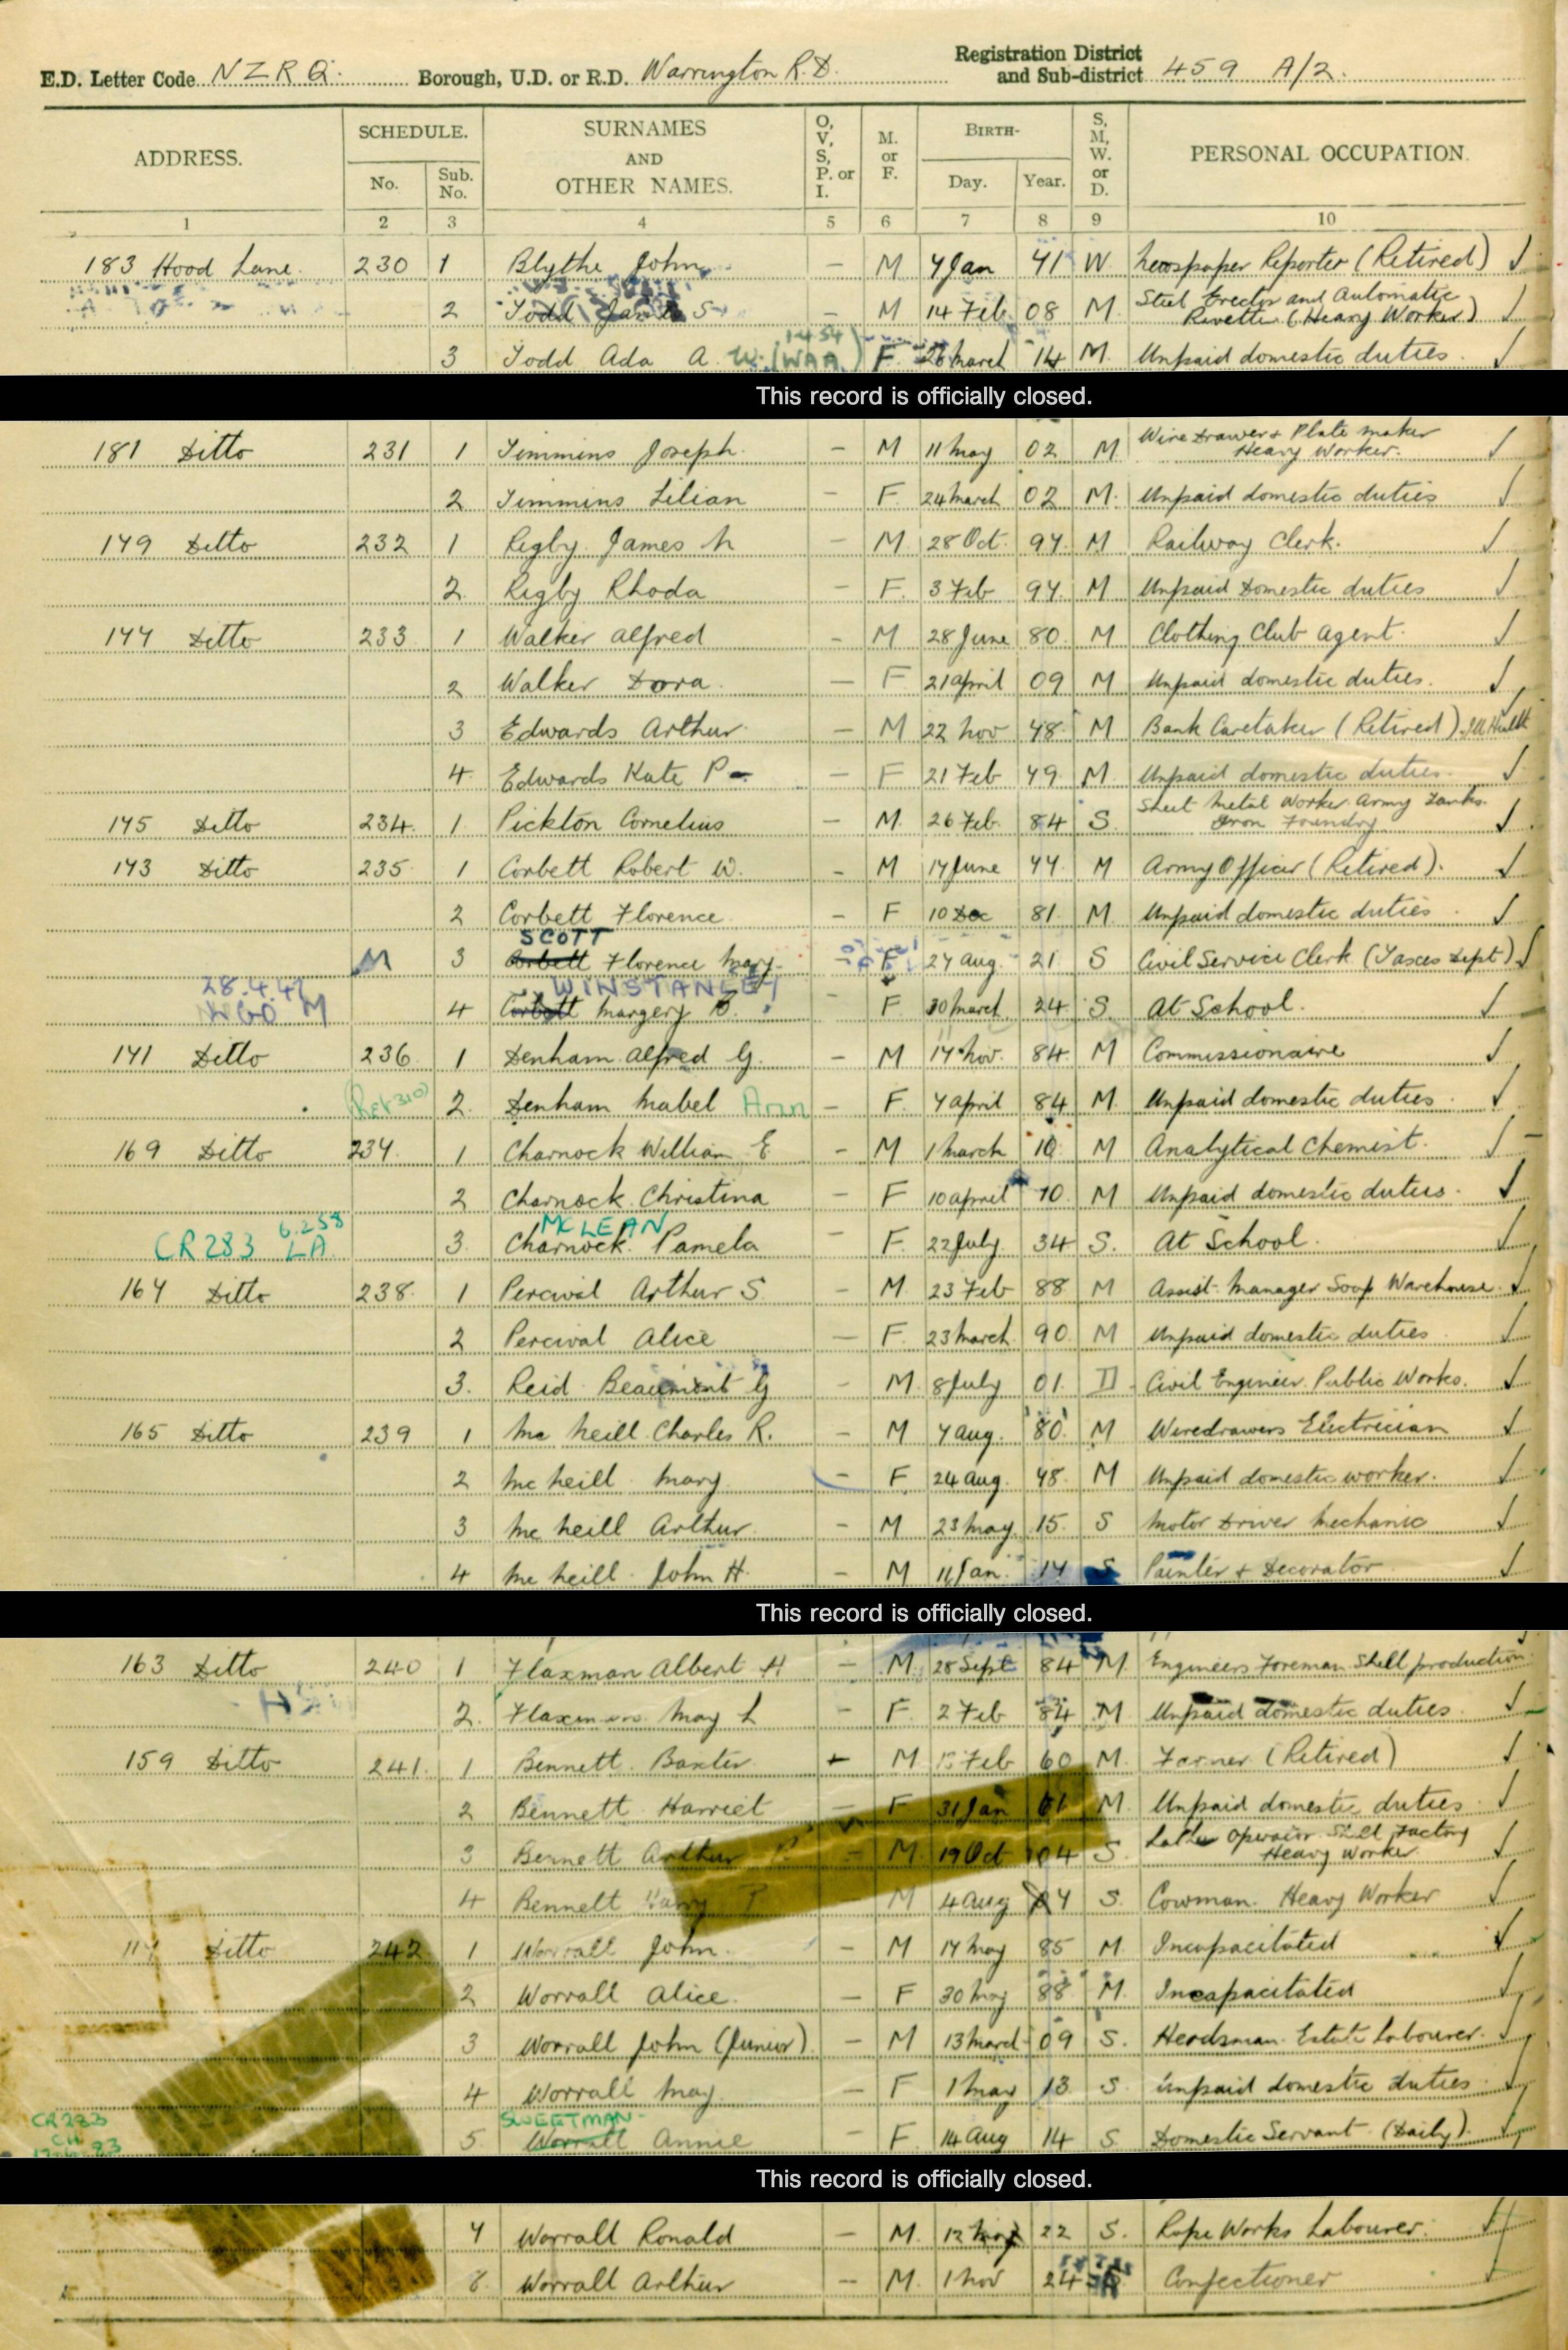 E.D. Letter Code NZRQ. Borough, U.D. or R.D. Warrington R.D. Registration District and Sub-district 459 A/2.
ADDRESS. SCHEDULE. No. Sub. No. SURNAMES AND OTHER NAMES. O, V, S, P. or I. M. or F. BIRTH- Day. Year. S, M, W. or D. PERSONAL OCCUPATION.
1 2 3 4 5 6 7 8 9 10
183 Hood Lane. 230 1 Blythe John - M 7 Jan 71 W. Newspaper Reporter (Retired) ✓
2 Todd James S - M 14 Feb 08 M. Steel Erector and Automatic Rivetter (Heavy Worker) ✓
3 Todd Ada A. F. 26 March 14 M. Unpaid domestic duties. ✓
This record is officially closed.
181 Ditto 231 1 Timmins Joseph. - M 11 May 02 M. Wire Drawer & Plate maker Heavy Worker. ✓
2 Timmins Lilian - F. 24 March 02 M. Unpaid domestic duties ✓
179 Ditto 232 1 Rigby James N - M. 28 Oct. 97. M Railway Clerk. ✓
2. Rigby Rhoda - F. 3 Feb 97. M Unpaid Domestic duties ✓
177 Ditto 233 1 Walker Alfred - M 28 June 80. M Clothing Club Agent. ✓
2 Walker Dora. - F 21 April 09 M Unpaid domestic duties. ✓
3 Edwards Arthur. - M 22 Nov 78. M Bank Caretaker (Retired). Ill Health
4. Edwards Kate P - F 21 Feb 79 M. Unpaid domestic duties. ✓
175 Ditto 234. 1. Pickton Cornelius - M. 26 Feb. 84 S. Sheet Metal Worker Army Tanks. Iron Foundry ✓
173 Ditto 235. 1 Corbett Robert W. - M 17 June 77. M Army Officer (Retired). ✓
2 Corbett Florence. - F 10 Dec 81. M. Unpaid domestic duties. ✓
SCOTT
M 3 Corbett Florence Mary - F 27 Aug. 21. S Civil Service Clerk (Taxes Dept) ✓
28.4.47 WINSTANLEY
4 Corbett Margery B. - F. 30 March 24 S. At School. ✓
171 Ditto 236. 1 Denham Alfred G. - M 17 Nov. 84. M Commissionaire ✓
2. Denham Mabel Ann - F. 7 April 84 M. Unpaid domestic duties. ✓
169 Ditto 237. 1 Charnock William E - M 1 March 10. M Analytical Chemist. ✓
2 Charnock Christina - F 10 April 10. M Unpaid domestic duties. ✓
MCLEAN
CR283 6.2.58 LA 3. Charnock Pamela - F. 22 July 34 S. At School. ✓
167 Ditto 238. 1 Percival Arthur S. - M. 23 Feb 88 M Assist. Manager Soap Warehouse. ✓
2 Percival Alice - F. 23 March. 90. M Unpaid domestic duties ✓
3. Reid Beaumont G - M. 8 July 01. D - Civil Engineer. Public Works. ✓
165 Ditto 239 1 Mc Neill Charles R. - M 7 Aug. 80. M Wiredrawers Electrician ✓
2 Mc Neill Mary - F. 24 Aug. 78. M Unpaid domestic worker. ✓
3 Mc Neill Arthur. - M 23 May. 15. S Motor Driver Mechanic ✓
4 Mc Neill John H. - M 11 Jan. 17 S Painter & Decorator ✓
This record is officially closed.
163 Ditto 240 1 Flaxman Albert H - M. 28 Sept 84 M. Engineers Foreman Shell production
2. Flaxman May L - F. 2 Feb 84 M Unpaid domestic duties. ✓
159 Ditto 241. 1 Bennett Baxter. M. 13 Feb 60 M. Farmer (Retired) ✓
2 Bennett Harriet - F 31 Jan 61 M. Unpaid domestic duties ✓
3 Bennett Arthur P. - M. 19 Oct 04 S. Lathe Operator Shell Factory Heavy Worker ✓
4 Bennett Harry M 4 Aug S. Cowman. Heavy Worker ✓
Ditto 242 1 Worrall John. - M 17 May 85 M. Incapacitated ✓
2 Worrall Alice. - F 30 May 88 M. Incapacitated ✓
3 Worrall John (Junior). - M 13 March 09 S. Herdsman. Estate Labourer. ✓
4 Worrall May. - F 1 May 13 S. Unpaid domestic duties ✓
CR283 SWEETMAN
5 Worrall Annie - F. 14 Aug 14 S. Domestic Servant (Daily). ✓
This record is officially closed.
7 Worrall Ronald - M. 12 May 22 S. Rope Works Labourer. ✓
8. Worrall Arthur - M. 1 Nov 24 Confectioner